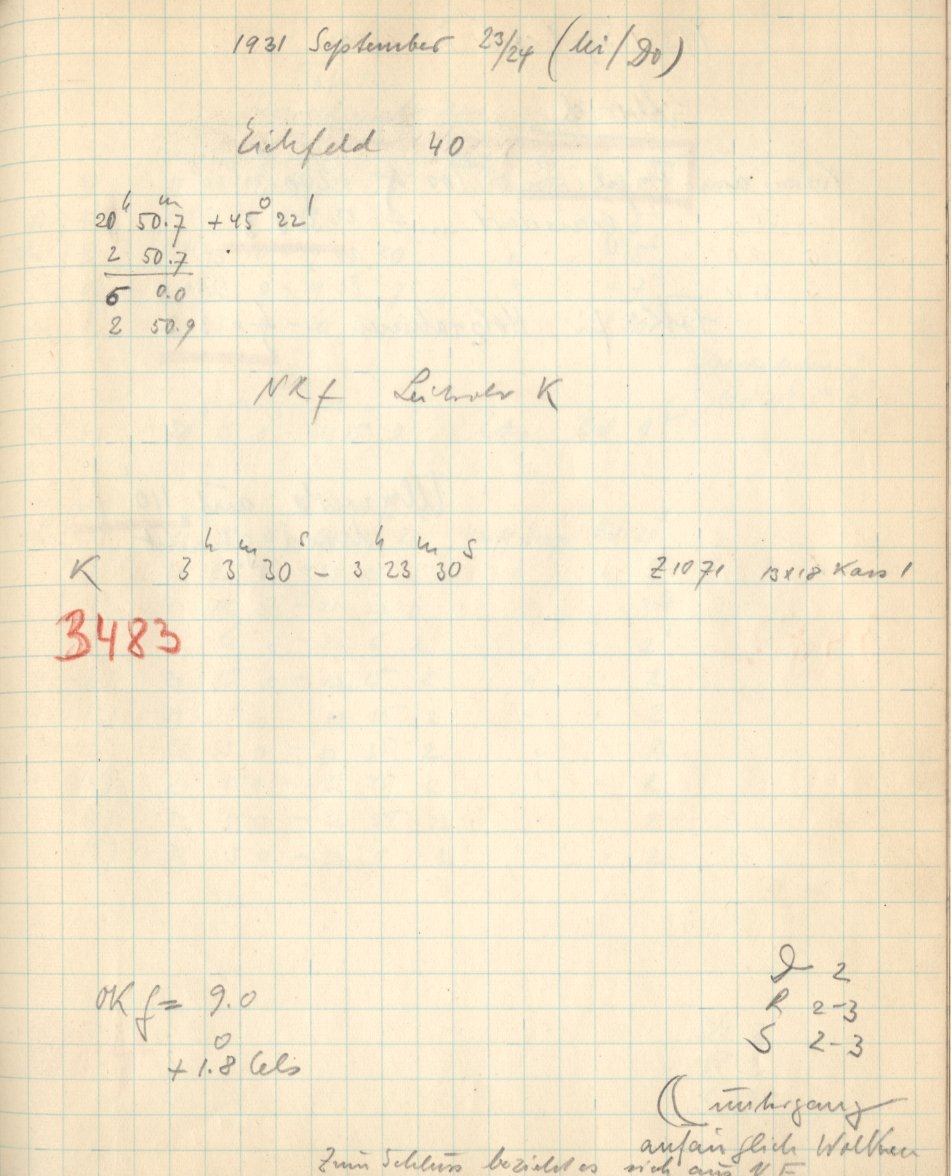 1931 September 23/24 (Mi/Do)
Eichfeld 40
20h 50.7m +45° 22'
2 50.7
6 0.0
2 50.9
NRf K
K 3h 3m 30s – 3h 23m 30s Z1071 13x18 Kass 1
3483
D 2
OK f = 9.0 R 2-3
+ 1.8° Cels S 2-3
☾ untergang
anfänglich Wolken
Zum Schluss bezieht es sich aus NE